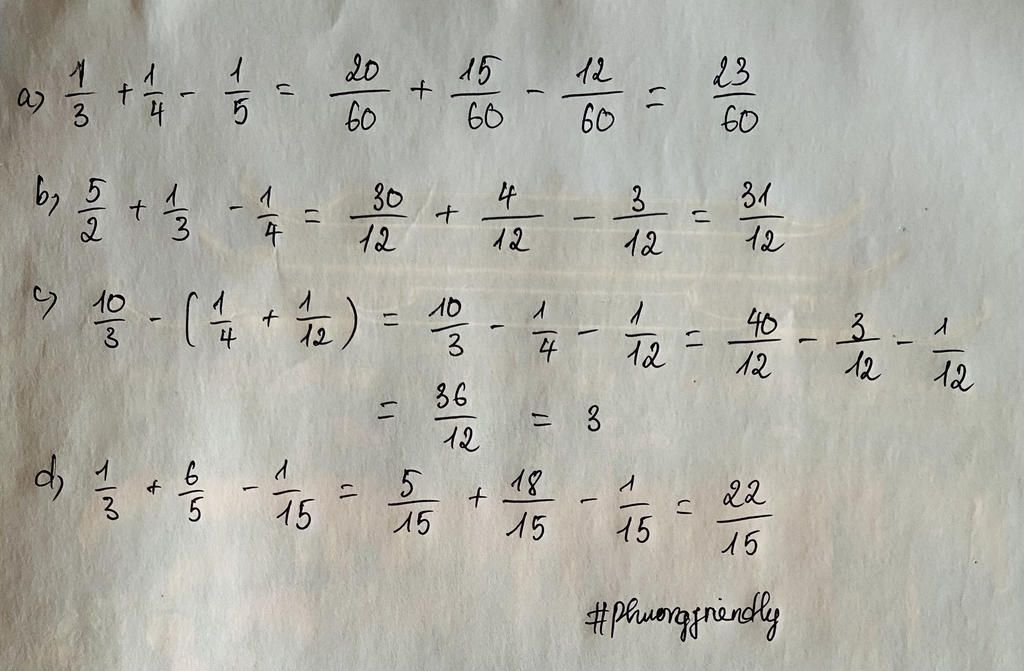 a) 1/3 + 1/4 - 1/5 = 20/60 + 15/60 - 12/60 = 23/60
b) 5/2 + 1/3 - 1/4 = 30/12 + 4/12 - 3/12 = 31/12
c) 10/3 - (1/4 + 1/12) = 10/3 - 1/4 - 1/12 = 40/12 - 3/12 - 1/12
= 36/12 = 3
d) 1/3 + 6/5 - 1/15 = 5/15 + 18/15 - 1/15 = 22/15
#phuongfriendly